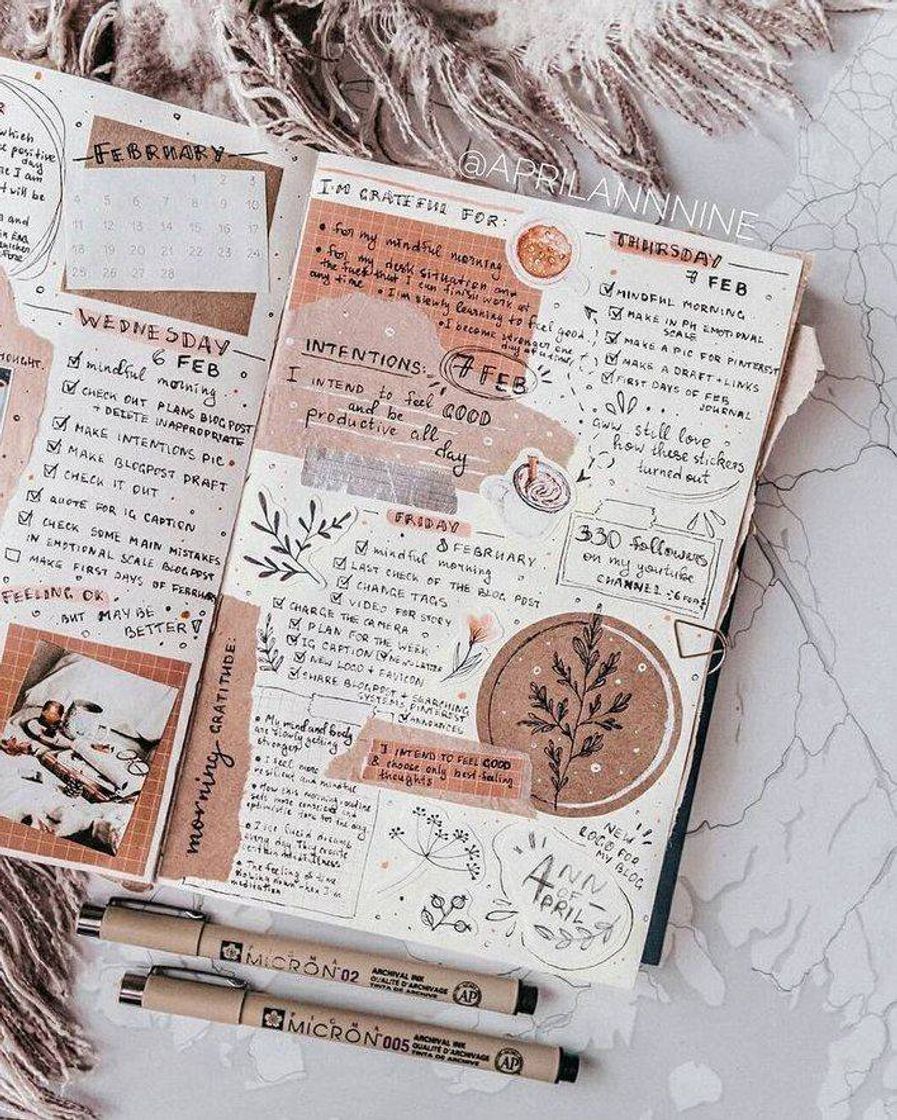 @APRILANNNINE
which
positive
day
I am
it will be
and
FEBRUARY
1 2 3
4 5 6 7 8 9 10
11 12 13 14 15 16 17
18 19 20 21 22 23 24
25 26 27 28
WEDNESDAY
6 FEB
mindful morning
CHECK OUT PLANS BLOG POST
+ DELETE INAPPROPRIATE
MAKE INTENTIONS PIC
MAKE BLOGPOST DRAFT
CHECK IT OUT
QUOTE FOR IG CAPTION
CHECK SOME MAIN MISTAKES
IN EMOTIONAL SCALE BLOGPOST
MAKE FIRST DAYS OF FEBRUARY
THOUGHT
FEELING OK
BUT MAYBE
BETTER
I'M GRATEFUL FOR:
• for my mindful morning
• for my desk situation and
the fact that I can finish work at
any time • I'm slowly learning to feel good
• I become stronger one
day at a time
INTENTIONS:
7 FEB
I INTEND to feel GOOD
and be
productive all
day
THURSDAY
7 FEB
MINDFUL MORNING
MAKE IN PH EMOTIONAL
SCALE
MAKE A PIC FOR PINTEREST
MAKE A DRAFT + LINKS
FIRST DAYS OF FEB
JOURNAL
aww still love
how these stickers
turned out
330 followers
on my youtube
CHANNEL :6 FEB:
FRIDAY
8 FEBRUARY
mindful morning
LAST CHECK OF THE BLOG POST
CHANGE TAGS
VIDEO FOR STORY
CHARGE THE CAMERA
PLAN FOR THE WEEK
IG CAPTION NEWSLETTER
NEW LOGO + FAVICON
SHARE BLOGPOST + SEARCHING
SYSTEMS, PINTEREST
ANNOUNCES
morning GRATITUDE:
• My mind and body
are slowly getting
stronger
• I feel more
resilient and mindful
• How this morning routine
sets more conscious and
optimistic tone for the day
every day They create
• The feeling of time
slowing down when I'm
meditation
I INTEND TO FEEL GOOD
& choose only best-feeling
thoughts
NEW
LOGO FOR
MY BLOG
ANN
OF
APRIL
PIGMA
MICRON 02
ARCHIVAL INK
QUALITÉ D'ARCHIVAGE
TINTA DE ARCHIVO
AP
PIGMA
MICRON 005
ARCHIVAL INK
QUALITÉ D'ARCHIVAGE
TINTA DE ARCHIVO
AP